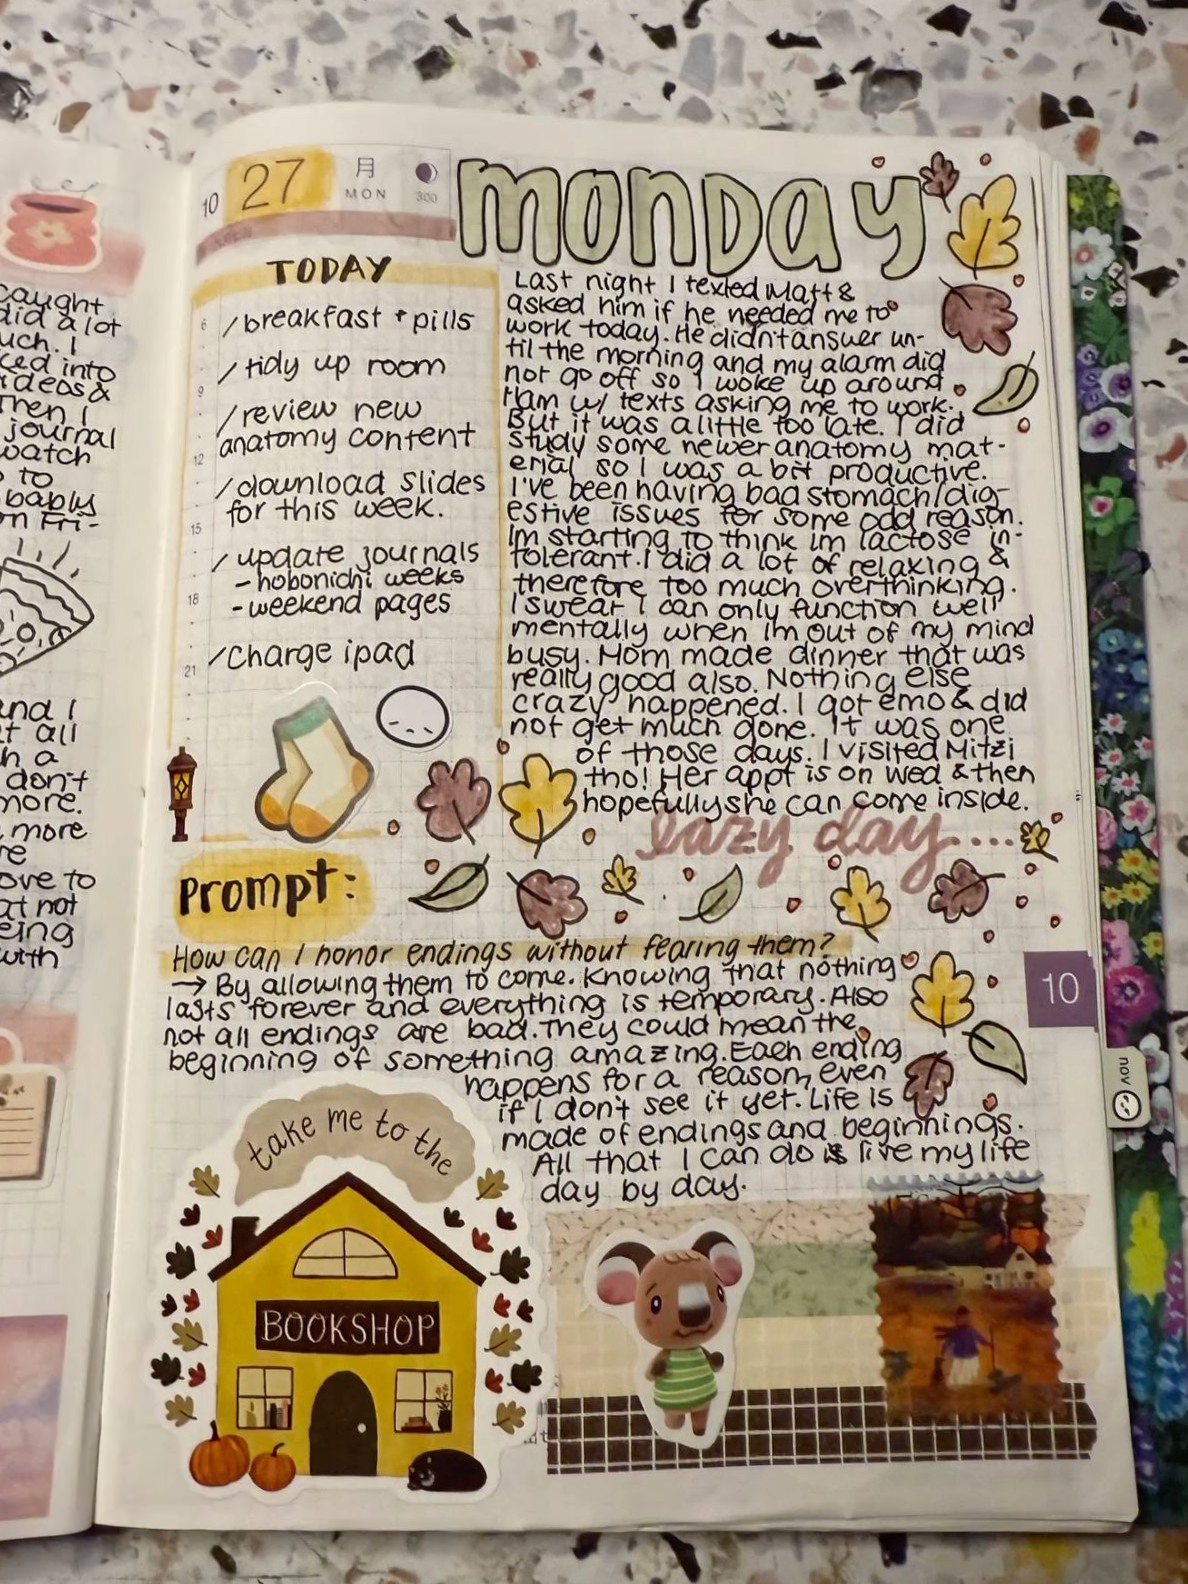 caught
did a lot
uch. I
ced into
ideos &
Then I
journal
watch
to
bably
on Fri-
and I
t all
h a
don't
more.
more
re
ove to
at not
eing
with
10 27 月
MON
300
monday
TODAY
/ breakfast + pills
/ tidy up room
/ review new
anatomy content
/ download slides
for this week.
/ update journals
- hobonichi weeks
- weekend pages
/ charge ipad
6
9
12
15
18
21
Last night I texted Matt &
asked him if he needed me to
work today. He didn't answer un-
til the morning and my alarm did
not go off so I woke up around
11am w/ texts asking me to work.
But it was a little too late. I did
study some newer anatomy mat-
erial so I was a bit productive.
I've been having bad stomach/dig-
estive issues for some odd reason.
Im starting to think im lactose in-
tolerant. I did a lot of relaxing &
therefore too much overthinking.
I swear I can only function well
mentally when im out of my mind
busy. Mom made dinner that was
really good also. Nothing else
crazy happened. I got emo & did
not get much done. It was one
of those days. I visited Mitzi
tho! Her appt is on wed & then
hopefully she can come inside.
lazy day....
Prompt:
How can I honor endings without fearing them?
→ By allowing them to come. Knowing that nothing
lasts forever and everything is temporary. Also
not all endings are bad. They could mean the
beginning of something amazing. Each ending
happens for a reason, even
if I don't see it yet. Life is
made of endings and beginnings.
All that I can do is live my life
day by day.
take me to the
BOOKSHOP
10
nov